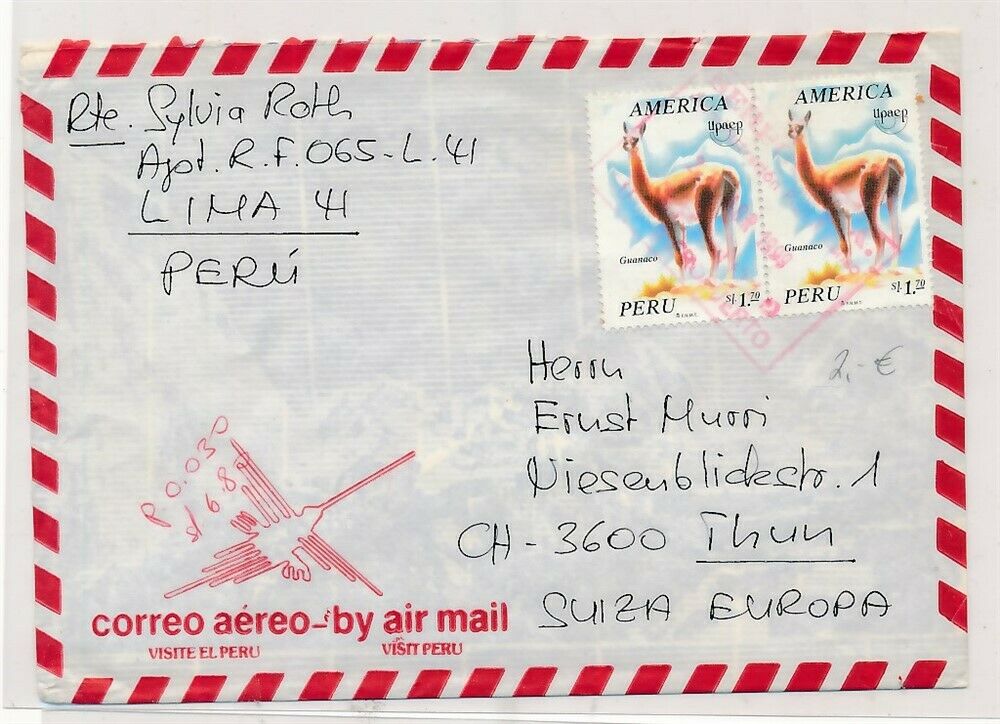 Rte. Sylvia Roth
Apt. R.F. 065-L.41
LIMA 41
PERÚ
AMERICA
upaep
Guanaco
PERU
S/.1.70
AMERICA
upaep
Guanaco
PERU
S/.1.70
2,- €
Herrn
Ernst Murri
Niesenblickstr. 1
CH - 3600 Thun
SUIZA EUROPA
P 0.030
s/ 6.80
correo aéreo - by air mail
VISITE EL PERU
VISIT PERU